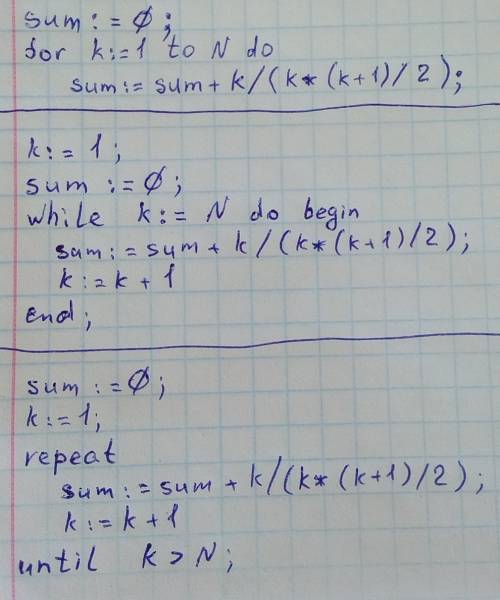 sum := Ø;
for k:=1 to N do
sum:= sum + k/(k*(k+1)/2);
k:= 1;
sum := Ø;
while k:= N do begin
sum:= sum + k/(k*(k+1)/2);
k:=k + 1
end;
sum :=Ø;
k:=1;
repeat
sum:= sum + k/(k*(k+1)/2);
k:= k + 1
until k > N;